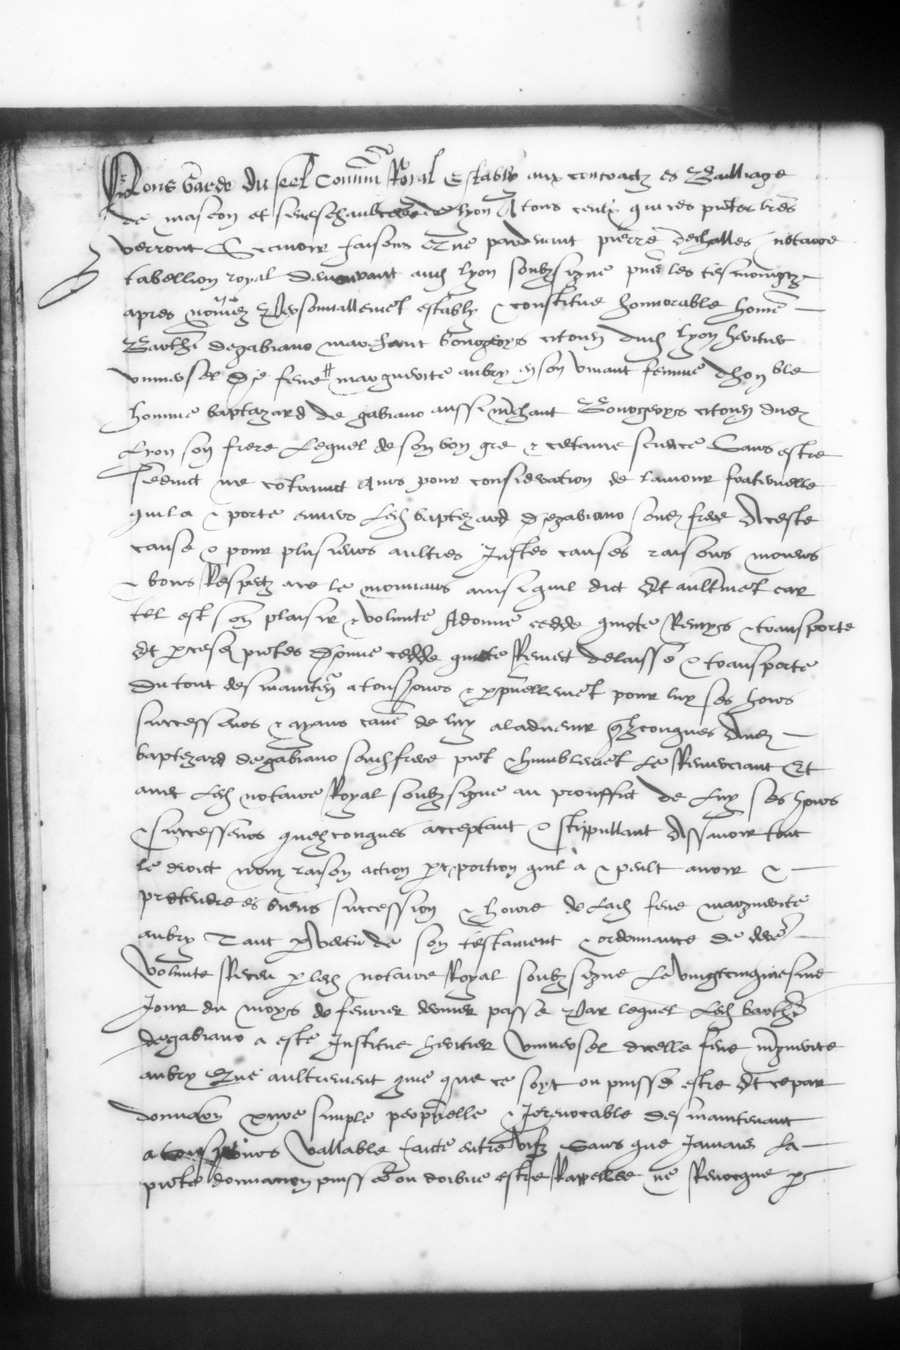 Nous Garde du seel Commun Royal Estably aux contractz es Bailliage
de mascon et seneschaulcee de lyon A tous ceulx qui ces pntes lres
verront Scavoir faisons Que pardevant pierre dechalles notaire
tabellion royal demourant aud lyon soubzsigne pnt les tesmoingtz
apres nommez Personnallement estably & constitue honnorable home
Barthi degabiano marchant bourgeoys citoien dud lyon heritier
universel de feue margueritte aubry en son vivant femme d'honble
homme baptazard de gabiano aussi mchant Bourgeoys citoien dud
Lyon son frere Lequel de son bon gre & certaine science Sans estre
seduict ne contrainct Ains pour consideration de lamour fraternelle
quil a & porte envers Led baptezard degabiano sond frere A ceste
cause & pour plusieurs aultres Justes causes raisons moiens
& bons Respectz a ce le mouvans ainsi quil dict Et aultrement car
tel est son plaisir & volunte A donne cedde quicte Remys & transporte
Et par ces pntes Donne cedde quicte Remect delaisse & transporte
Du tout des maintent a tousjours & perpetuellement pour luy ses hoirs
successeurs & ayans cause de luy aladvenir quelzconques Aud
baptezard degabiano sond frere pnt & humblement Le Remerciant Et
avec Led notaire Royal soubzsigne au prouffict de Luy ses hoirs
& successeurs quelzconques acceptant & stippullant Assavoir tout
le droict nom raison action part portion quil a & peult avoir &
pretendre es biens succession & hoirie de Lad feue margueritte
aubry Tant par vertu de son testament & ordonnance de derre
volunte Receu par led notaire Royal soubzsigne Le vingtcinquiesme
Jour du moys de fevrier dernier passe Par lequel Led barthi
degabiano a este Institue heritier universel dicelle feue mgueritte
aubry Que aultrement que que ce soyt ou puisse estre Et ce par
donnation pure simple perpetuelle & Irrevocable des maintenant
a tousjours vallable faicte entre vifz Sans que Jamais La
pnte donnation puisse ou doibve estre Rappellee ne Revocque par